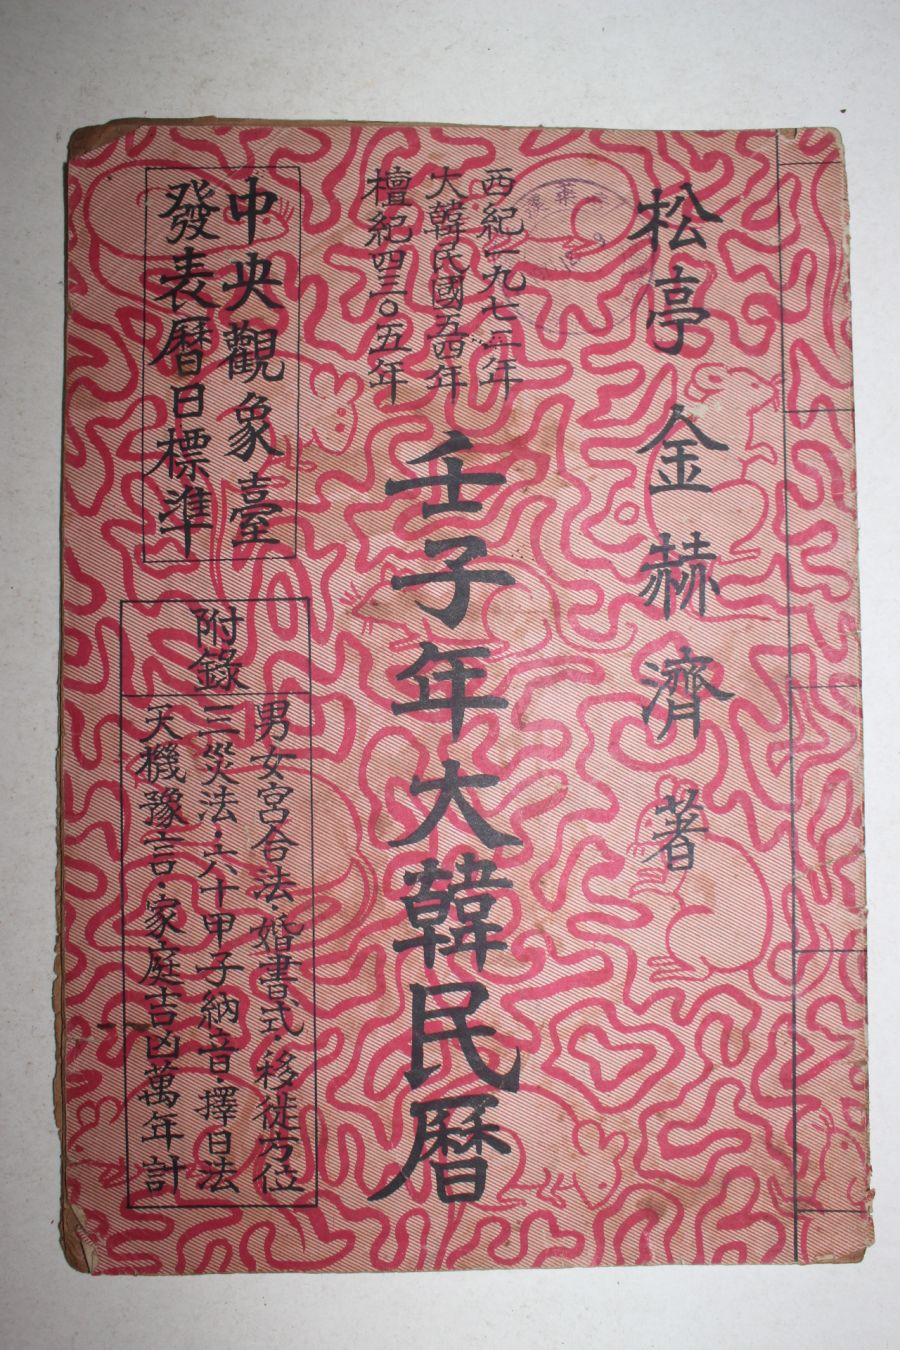 松亭 金赫濟 著
西紀一九七二年
大韓民國五四年
檀紀四三〇五年
壬子年大韓民暦
中央觀象臺
發表暦日標準
附錄
男女宮合法·婚書式·移徙方位
三災法·六十甲子納音·擇日法
天機豫言·家庭吉凶萬年計